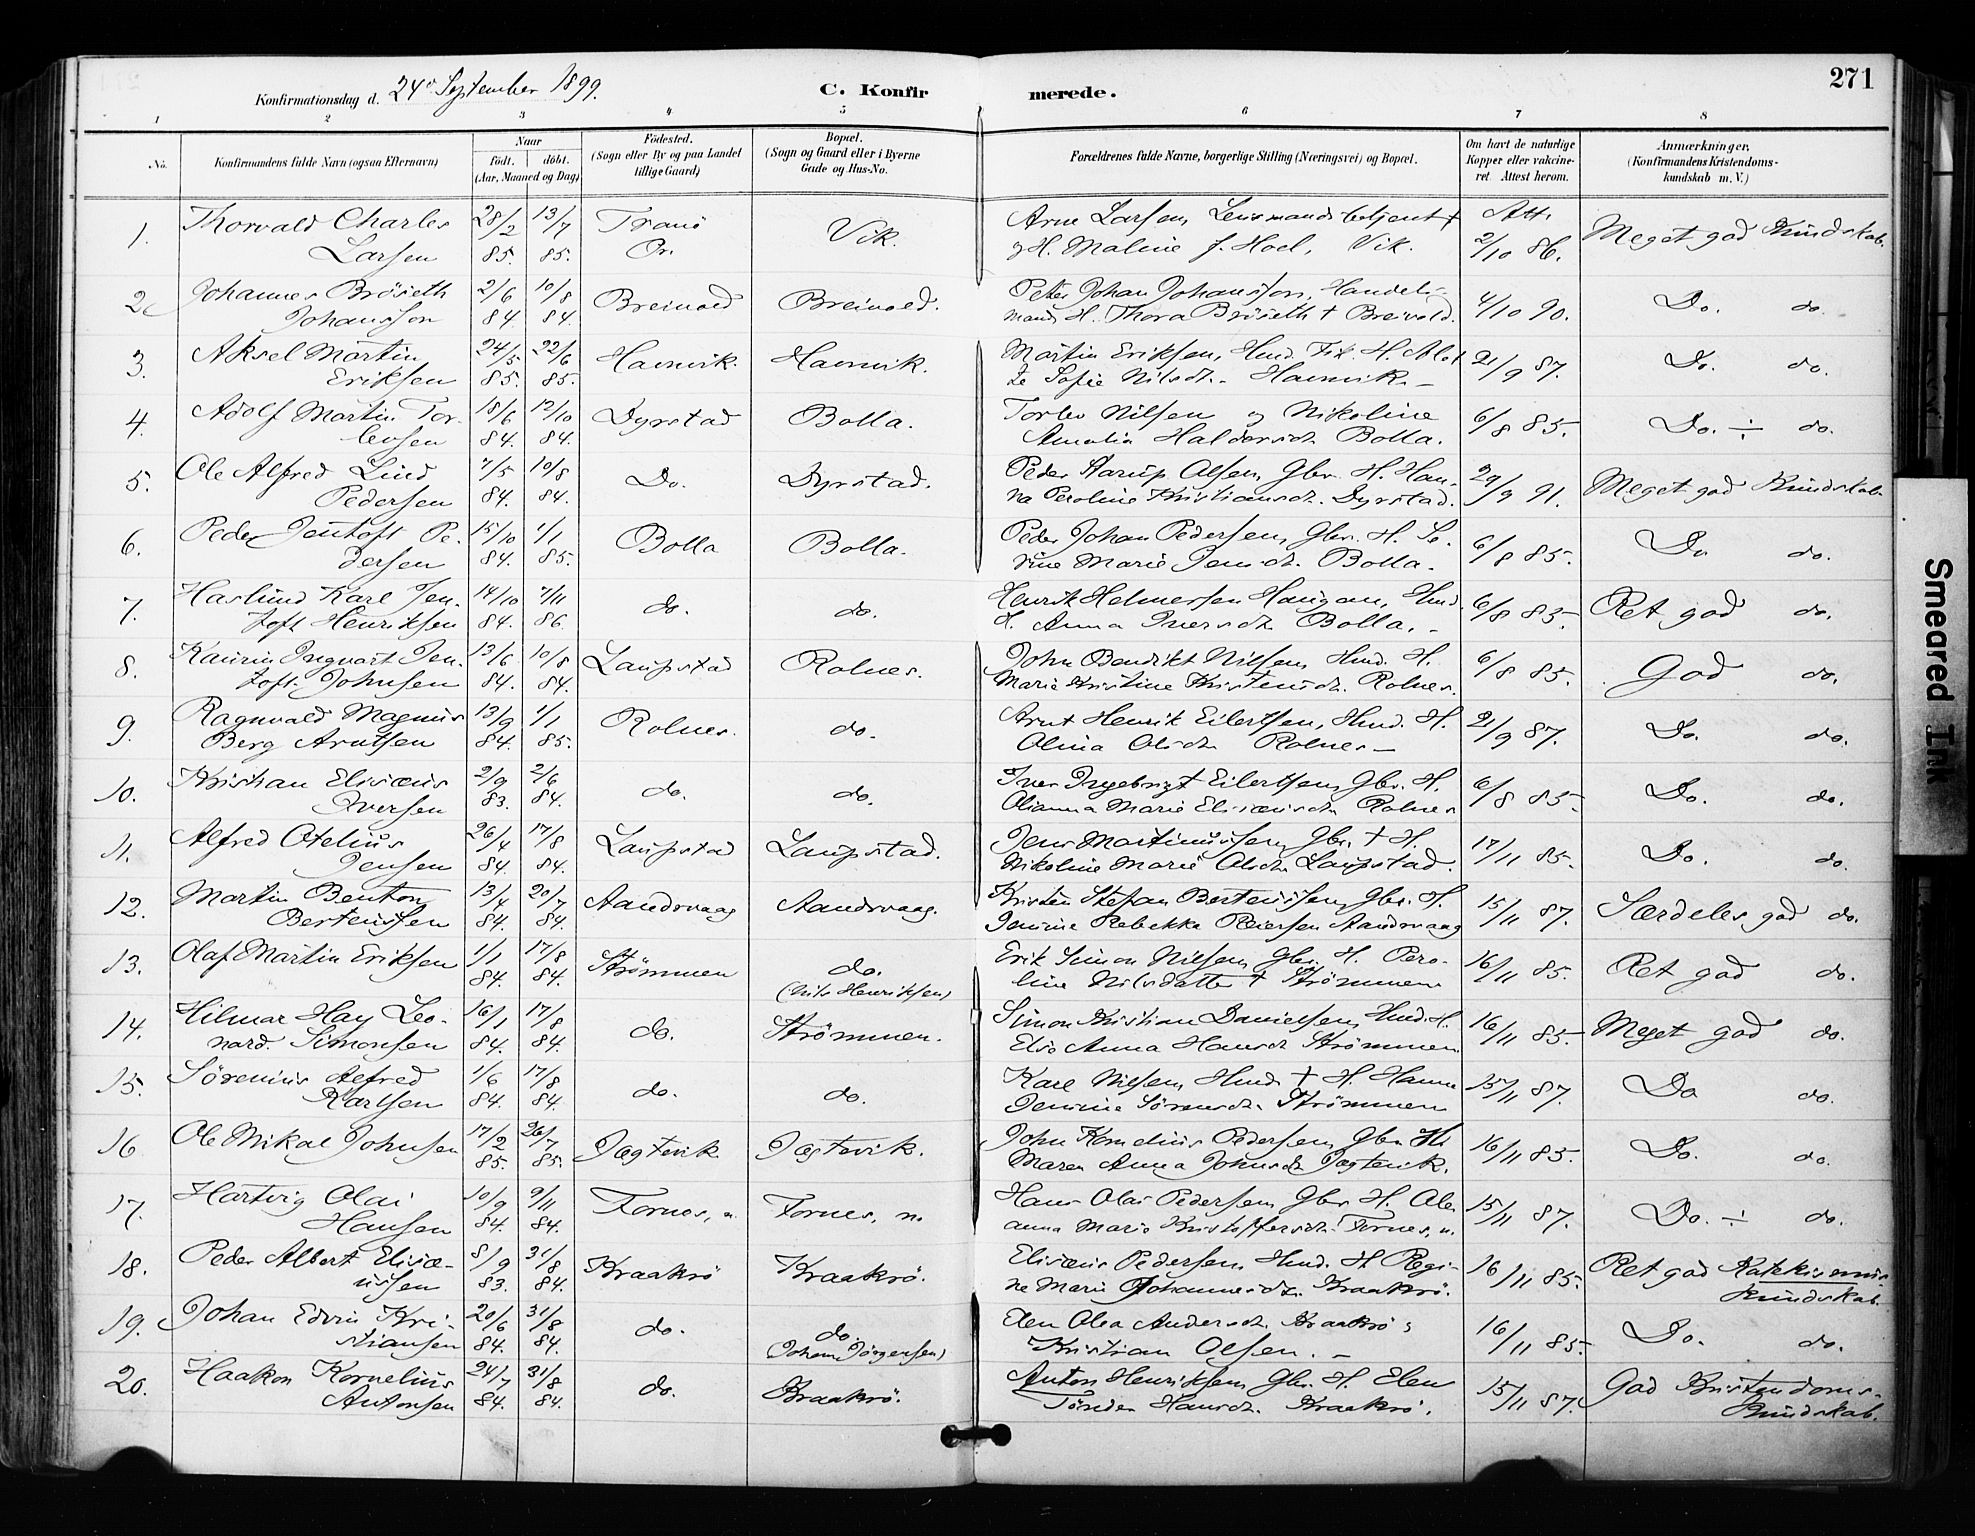 271
Konfirmationsdag d. 24de September 1899.
C. Konfirmerede.
1 2 3 4 5 6 7 8
No. Konfirmandens fulde Navn (ogsaa Efternavn) Naar födt. döbt. (Aar, Maaned og Dag) Födested. (Sogn eller By og paa Landet tillige Gaard) Bopæl. (Sogn og Gaard eller i Byerne Gade og Hus-No. Forældrenes fulde Navne, borgerlige Stilling (Næringsvei) og Bopæl. Om havt de naturlige Kopper eller vakcineret. Attest herom. Anmærkninger. (Konfirmandens Kristendomskundskab m. V.)
1. Thorvald Charles Larsen 28/2 85. 13/7 85. Tranö Vik. Arne Larsen, Lensmandsbetjent † og H. Maline f. Hoel, Vik. Att. 2/10 86. Meget god Kundskab.
2. Johannes Bröseth Johansson 2/6 84. 10/8 84. Breivold Breivold. Peter Johan Johansson, Handelsmand H. Thora Bröseth † Breivold. 4/10 90. Do. do.
3. Aksel Martin Eriksen 24/5 85. 22/6 85. Havnvik. Havnvik. Martin Eriksen, Hmd. H. Sofie Nilsdt. Havnvik. 21/9 87. Do. do.
4. Adolf Martin Torlevsen 18/6 84. 12/10 84. Dyrstad Bolla. Torlev Nilsen og Nikoline Amalia Haldorsdt. Bolla. 6/8 85. Do. ÷ do.
5. Ole Alfred Lind Pedersen 7/5 84. 10/8 84. Do. Dyrstad. Peder Aarup Olsen, Gbr. H. Hanna Peroline Kristiansdt. Dyrstad. 29/9 91. Meget god Kundskab
6. Peder Jentoft Pedersen 15/10 84. 1/1 85. Bolla Bolla. Peder Johan Pedersen, Gbr. H. Serine Marie Jensdt. Bolla. 6/8 85. Do do.
7. Haslund Karl Jentoft Henriksen 14/10 84. 7/11 86. do. do. Henrik Helmersen Haugan, Hmd. H. Anna Iversdt. Bolla. 6/8 85. Ret god do.
8. Kaurin Ingvart Jentoft Johnsen 13/6 84. 10/8 84. Laupstad Rolnes. John Bendikt Nilsen, Hmd. H. Marie Kristine Kristensdt. Rolnes. 6/8 85. God do.
9. Ragnvald Magnus Berg Arntsen 13/9 84. 1/1 85. Rolnes. do. Arnt Henrik Eilertsen, Hmd. H. Olina Olsdt. Rolnes 21/9 87. Do. do.
10. Kristian Elisæus Iversen 2/9 83. 2/6 84. do. do. Iver Ingebrigt Eilertsen, Gbr. H. Olianna Marie Elisæusdt. Rolnes 6/8 85 Do. do.
11. Alfred Otelius Jensen 26/4 84. 17/8 84. Laupstad Laupstad. Jens Martinussen, Gbr. † H. Nikoline Marie Olsdt. Laupstad. 17/11 85. Do. do.
12. Martin Benton Berteussen 13/4 84. 20/7 84. Aandsvaag Aandsvaag. Kristen Stefan Berteussen, Gbr. H. Jensine Rebekka Reiersen Aandsvaag 15/11 87. Særdeles god do.
13. Olaf Martin Eriksen 1/1 84. 17/8 84. Strömmen do. (Nils Henriksen) Erik Simon Nilsen, Gbr. H. Peroline Nilsdatter † Strömmen 16/11 85. Ret god do.
14. Hilmar Hay Leonard Simonsen 16/1 84. 17/8 84. do. Strömmen. Simon Kristian Danielsen, Hmd. H. Else Anna Hansdt. Strömmen 16/11 85. Meget god do.
15. Sörenius Alfred Karlsen 1/6 84. 17/8 84. do. do. Karl Nilsen, Hmd. † H. Hanna Jensine Sörensdt. Strömmen 15/11 87. Do do.
16 Ole Mikal Johnsen 17/2 85. 26/7 85. Jægtevik Jægtevik. John Kornelius Pedersen, Gbr. H. Maren Anna Johnsdt. Jægtevik. 16/11 85. Do. do.
17. Hartvig Olai Hansen 10/9 84. 9/11 84. Fornes, n. Fornes, n. Hans Olai Pedersen, Gbr. H. Oleanna Marie Kristoffersdt. Fornes, n. 15/11 87. Do. ÷ do.
18. Peder Albert Elisæussen 8/9 83. 31/8 84. Kraakrö Kraakrö. Elisæus Pedersen, Hmd. H. Regine Marie Johannesdt. Kraakrö. 16/11 85. Ret god Katekismuskundskab.
19. Johan Edvin Kristiansen 20/6 84. 31/8 84. do. do. (Johan Jörgensen) Elen Olea Andersdt. Kraakrö & Kristian Olsen. 16/11 85. Do. do.
20. Haakon Kornelius Antonsen 24/7 84. 31/8 84. do. Kraakrö. Anton Henriksen, Gbr. H. Elen Hansdt. Kraakrö. 15/11 87. God Kristendomskundskab.
Smeared Ink